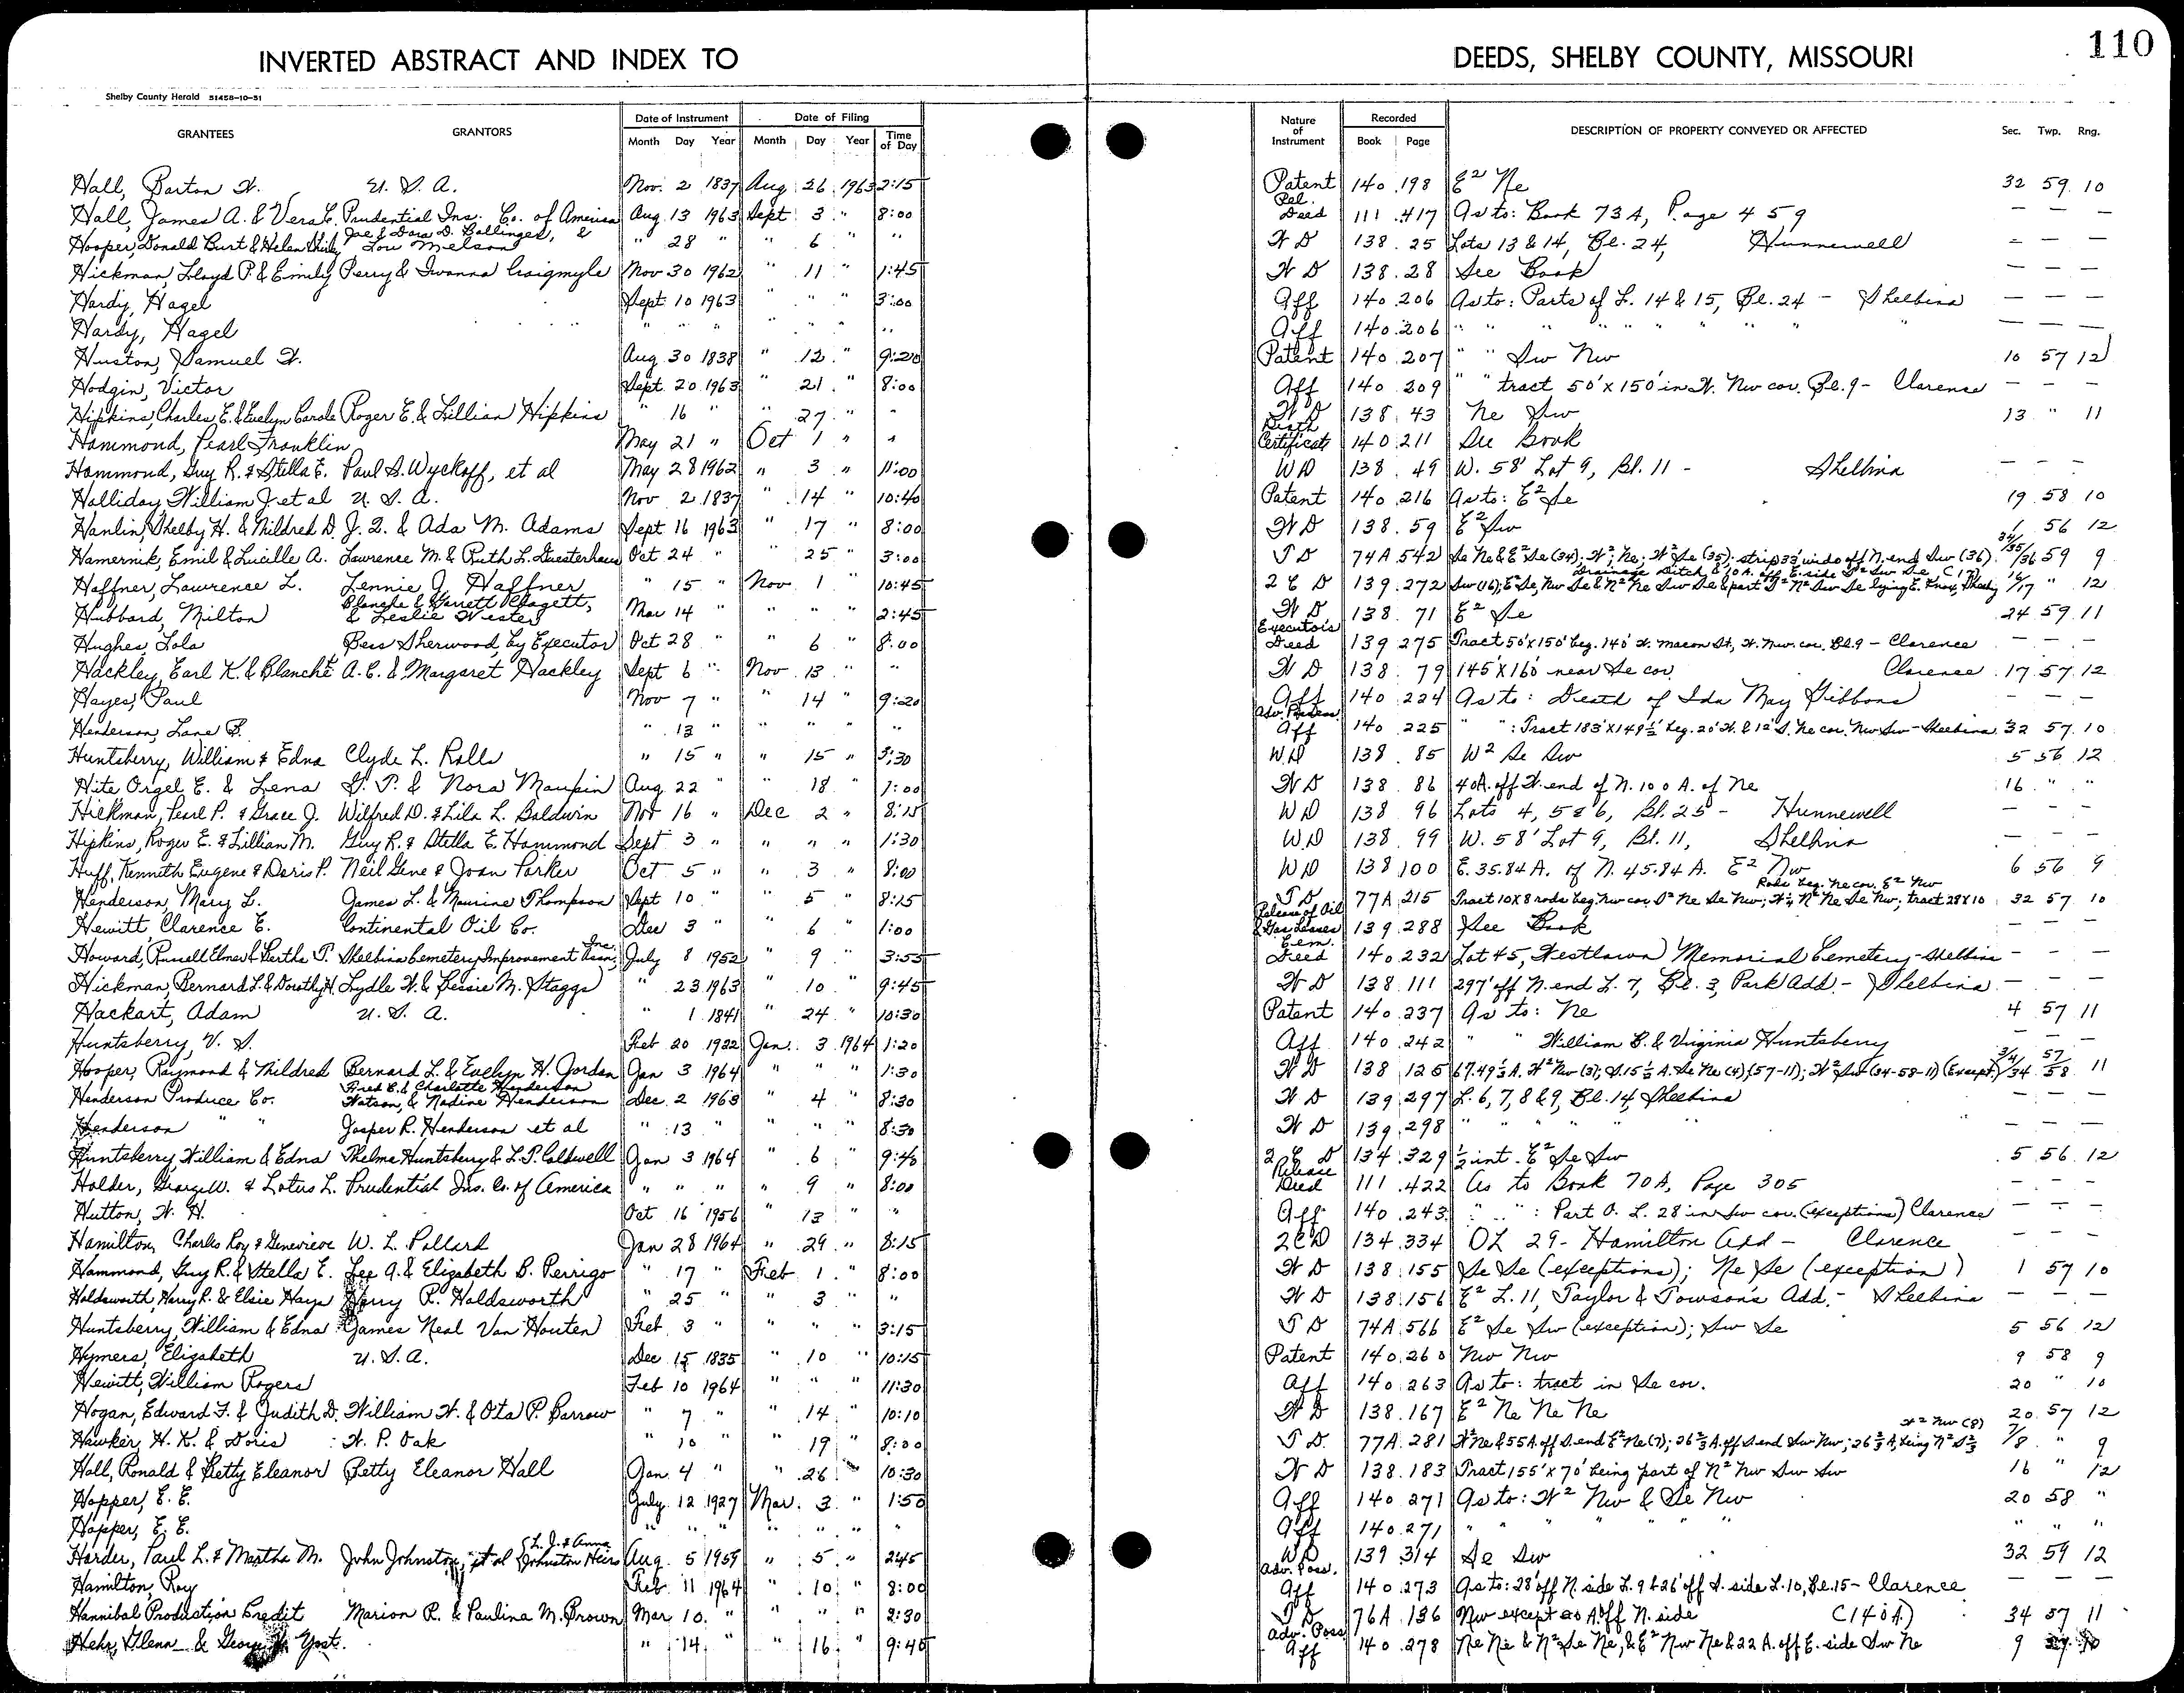 INVERTED ABSTRACT AND INDEX TO DEEDS, SHELBY COUNTY, MISSOURI 110
Shelby County Herald 51458-10-51
GRANTEES GRANTORS Date of Instrument Month Day Year Date of Filing Month Day Year Time of Day Nature of Instrument Recorded Book Page DESCRIPTION OF PROPERTY CONVEYED OR AFFECTED Sec. Twp. Rng.
Hall, Barton W. U. S. A. Nov. 2 1837 Aug 26 1963 2:15 Patent 140 198 E² Ne 32 59 10
Hall, James A. & Vera E. Prudential Ins. Co. of America Aug 13 1963 Sept 3 " 8:00 Rel. Deed 111 417 As to: Book 73A, Page 459 — — —
Hooper, Donald Burt & Helen Joe & Dora D. Ballinger, & Lou Melson " 28 " " 6 " " W D 138 25 Lots 13 & 14, Bl. 24, Hunnewell — — —
Hickman, Lloyd P. & Emily Perry & Iwanna Craigmyle Nov 30 1962 " 11 " 1:45 W D 138 28 See Book — — —
Hardy, Hagel Sept 10 1963 " " " 3:00 Aff 140 206 As to: Parts of L. 14 & 15, Bl. 24 - Shelbina — — —
Hardy, Hagel " " " " " " " Aff 140 206 " " " " " " " " " — — —
Huston, Samuel W. Aug 30 1838 " 12 " 9:20 Patent 140 207 " " Sw Nw 10 57 12
Hodgin, Victor Sept 20 1963 " 21 " 8:00 Aff 140 209 " " tract 50' x 150' in W. Nw cor. Bl. 9 - Clarence — — —
Hipkins, Charles E. & Evelyn Carole Roger E. & Lillian Hipkins " 16 " " 27 " " W D 138 43 Ne Sw 13 " 11
Hammond, Pearl Franklin May 21 " Oct 1 " " Death Certificate 140 211 See Book
Hammond, Guy R. & Stella E. Paul S. Wyckoff, et al May 28 1962 " 3 " 11:00 WD 138 49 W. 58' Lot 9, Bl. 11 - Shelbina — — —
Halliday, William J. et al U. S. A. Nov 2 1837 " 14 " 10:40 Patent 140 216 As to: E² Se 19 58 10
Hanlin, Shelby H. & Mildred D. J. Q. & Ada M. Adams Sept 16 1963 " 17 " 8:00 W D 138 59 E² Sw 1 56 12
Hamernik, Emil & Lucille A. Lawrence M. & Ruth L. Duesterhaus Oct 24 " " 25 " 3:00 T D 74A 542 Se Ne & E² Se (34); W² Ne; W² Se (35); strip 33' wide off N. end Sw (36) 34/35/36 59 9
Haffner, Lawrence L. Lennie J. Haffner " 15 " Nov 1 " 10:45 2 C D 139 272 Sw (16); E² Se, Nw Se & N² Ne Sw Se & part S² N² Sw Se lying E. Drainage Ditch & 10 A. off E. side S² Sw Se (17) 16/17 " 12
Hubbard, Milton Blanche & Garrett Clagett, & Leslie Wester Mar 14 " " " " 2:45 W D 138 71 E² Se 24 59 11
Hughes, Lola Bess Sherwood, by Executor Oct 28 " " 6 " 8:00 Executor's Deed 139 275 Tract 50' x 150' beg. 140' W. Macon St, W. Nw cor. Bl. 9 - Clarence — — —
Hackley, Earl K. & Blanche A. C. & Margaret Hackley Sept 6 " Nov 13 " " W D 138 79 145' X 160' near Se cor. Clarence 17 57 12
Hayes, Paul Nov 7 " " 14 " 9:20 Aff 140 224 As to: Death of Ida May Gibbons — — —
Henderson, Lane B. " 13 " " " " " Adv. Possess. Aff 140 225 " " : Tract 183' X 149½' beg. 20' W. & 12' S. Ne cor. Nw Sw - Shelbina 32 57 10
Huntsberry, William & Edna Clyde L. Ralls " 15 " " 15 " 3:30 WD 138 85 W² Se Sw 5 56 12
Hite Orgel E. & Lena G. T. & Nora Maupin Aug 22 " " 18 " 1:00 W D 138 86 40A. off W. end of N. 100 A. of Ne 16 " "
Hickman, Pearl P. & Grace J. Wilfred D. & Lila L. Baldwin Nov 16 " Dec 2 " 8:15 WD 138 96 Lots 4, 5 & 6, Bl. 25 - Hunnewell — — —
Hipkins, Roger E. & Lillian M. Guy R. & Stella E. Hammond Sept 3 " " " " 1:30 WD 138 99 W. 58' Lot 9, Bl. 11, Shelbina — — —
Huff, Kenneth Eugene & Doris P. Neil Gene & Joan Parker Oct 5 " " 3 " 8:00 WD 138 100 E. 35.84 A. of N. 45.84 A. E² Nw 6 56 9
Henderson, Mary L. James L. & Maurine Thompson Sept 10 " " 5 " 8:15 T D 77A 215 Tract 10 X 8 rods beg. Nw cor. S² Ne Se Nw; W¼ N² Ne Se Nw; tract 28 X 10 Rods beg. Ne cor. E² Nw 32 57 10
Hewitt, Clarence E. Continental Oil Co. Dec 3 " " 6 " 1:00 Release of Oil & Gas Leases 139 288 See Book — —
Howard, Russell Elmer & Bertha T. Shelbina Cemetery Improvement Assn., Inc. July 8 1952 " 9 " 3:55 Cem. Deed 140 232 Lot 45, Westlawn Memorial Cemetery - Shelbina — — —
Hickman, Bernard L. & Dorothy H. Lydle W. & Bessie M. Staggs " 23 1963 " 10 " 9:45 W D 138 111 297' off N. end L. 7, Bl. 3, Park Add. - Shelbina — — —
Hackart, Adam U. S. A. " 1 1841 " 24 " 10:30 Patent 140 237 As to: Ne 4 57 11
Huntsberry, V. S. Feb 20 1922 Jan. 3 1964 1:20 Aff 140 242 " " William B. & Virginia Huntsberry — —
Hooper, Raymond & Mildred Bernard L. & Evelyn H. Jordan Jan 3 1964 " " " 1:30 W D 138 125 67.49½ A. W² Nw (3); S. 15½ A. Se Ne (4) (57-11); W² Sw (34-58-11) (Except.) 3/4/34 57/58 11
Henderson Produce Co. Fred B. & Charlotte Henderson Watson, & Nadine Henderson Dec. 2 1963 " 4 " 8:30 W D 139 297 L. 6, 7, 8 & 9, Bl. 14, Shelbina — — —
Henderson " " Jasper R. Henderson et al " 13 " " " " 8:30 W D 139 298 " " " " " — — —
Huntsberry, William & Edna Thelma Huntsberry & L. P. Coldwell Jan 3 1964 " 6 " 9:40 2 C D 134 329 ½ int. E² Se Sw 5 56 12
Holder, George W. & Lotus L. Prudential Ins. Co. of America " " " " 9 " 8:00 Release Deed 111 422 As to Book 70A, Page 305 — — —
Hutton, W. H. Oct 16 1956 " 13 " " Aff 140 243 " " : Part O. L. 28 in Sw cor. (exceptions) Clarence — — —
Hamilton, Charles Roy & Genevieve W. L. Pollard Jan 28 1964 " 29 " 8:15 2CD 134 334 OL 29 - Hamilton Add - Clarence — — —
Hammond, Guy R. & Stella E. Lee A. & Elizabeth B. Perrigo " 17 " Feb 1 " 8:00 W D 138 155 Se Se (exceptions); Ne Se (exception) 1 57 10
Holdsworth, Harry R. & Elsie Hays Harry R. Holdsworth " 25 " " 3 " " W D 138 156 E² L. 11, Taylor & Towson's Add. - Shelbina — — —
Huntsberry, William & Edna James Neal Van Houten Feb 3 " " " " 3:15 T D 74A 566 E² Se Sw (exception); Sw Se 5 56 12
Hymers, Elizabeth U. S. A. Dec 15 1835 " 10 " 10:15 Patent 140 260 Nw Nw 9 58 9
Hewitt, William Rogers Feb 10 1964 " " " 11:30 Aff 140 263 As to: tract in Se cor. 20 " 10
Hogan, Edward F. & Judith D. William W. & Ota P. Barrow " 7 " " 14 " 10:10 W D 138 167 E² Ne Ne Ne 20 57 12
Hawker, H. K. & Doris W. P. Oak " 10 " " 19 " 8:00 T D 77A 281 W² Ne & 55 A. off S. end E² Ne (7); 26⅔ A. off S. end Sw Nw; 26⅔ A. being N² S⅔ W² Nw (8) 7/8 " 9
Hall, Ronald & Betty Eleanor Betty Eleanor Hall Jan. 4 " " 26 " 10:30 W D 138 183 Tract 155' x 70' being part of N² Nw Sw Sw 16 " 12
Hopper, E. E. July 12 1927 Mar. 3 " 1:50 Aff 140 271 As to: W² Nw & Se Nw 20 58 "
Hopper, E. E. " " " " " " " Aff 140 271 " " " " " " " " "
Harder, Paul L. & Martha M. John Johnston, et al (L. J. & Anna Johnston Heirs Aug. 5 1959 " 5 " 2:45 WD 139 314 Se Sw 32 59 12
Hamilton, Roy Feb. 11 1964 " 10 " 8:00 Adv. Poss. Aff 140 273 As to: 28' off N. side L. 9 & 26' off S. side L. 10, Bl. 15 - Clarence — — —
Hannibal Production Credit Marion R. & Paulina M. Brown Mar 10 " " " " 2:30 T D 76A 136 Nw except 20 A. off N. side (140A) 34 57 11
Hehr, Glenn & George Yost. " 14 " " 16 " 9:45 Adv. Poss Aff 140 278 Ne Ne & N² Se Ne, & E² Nw Ne & 22 A. off E. side Sw Ne 9